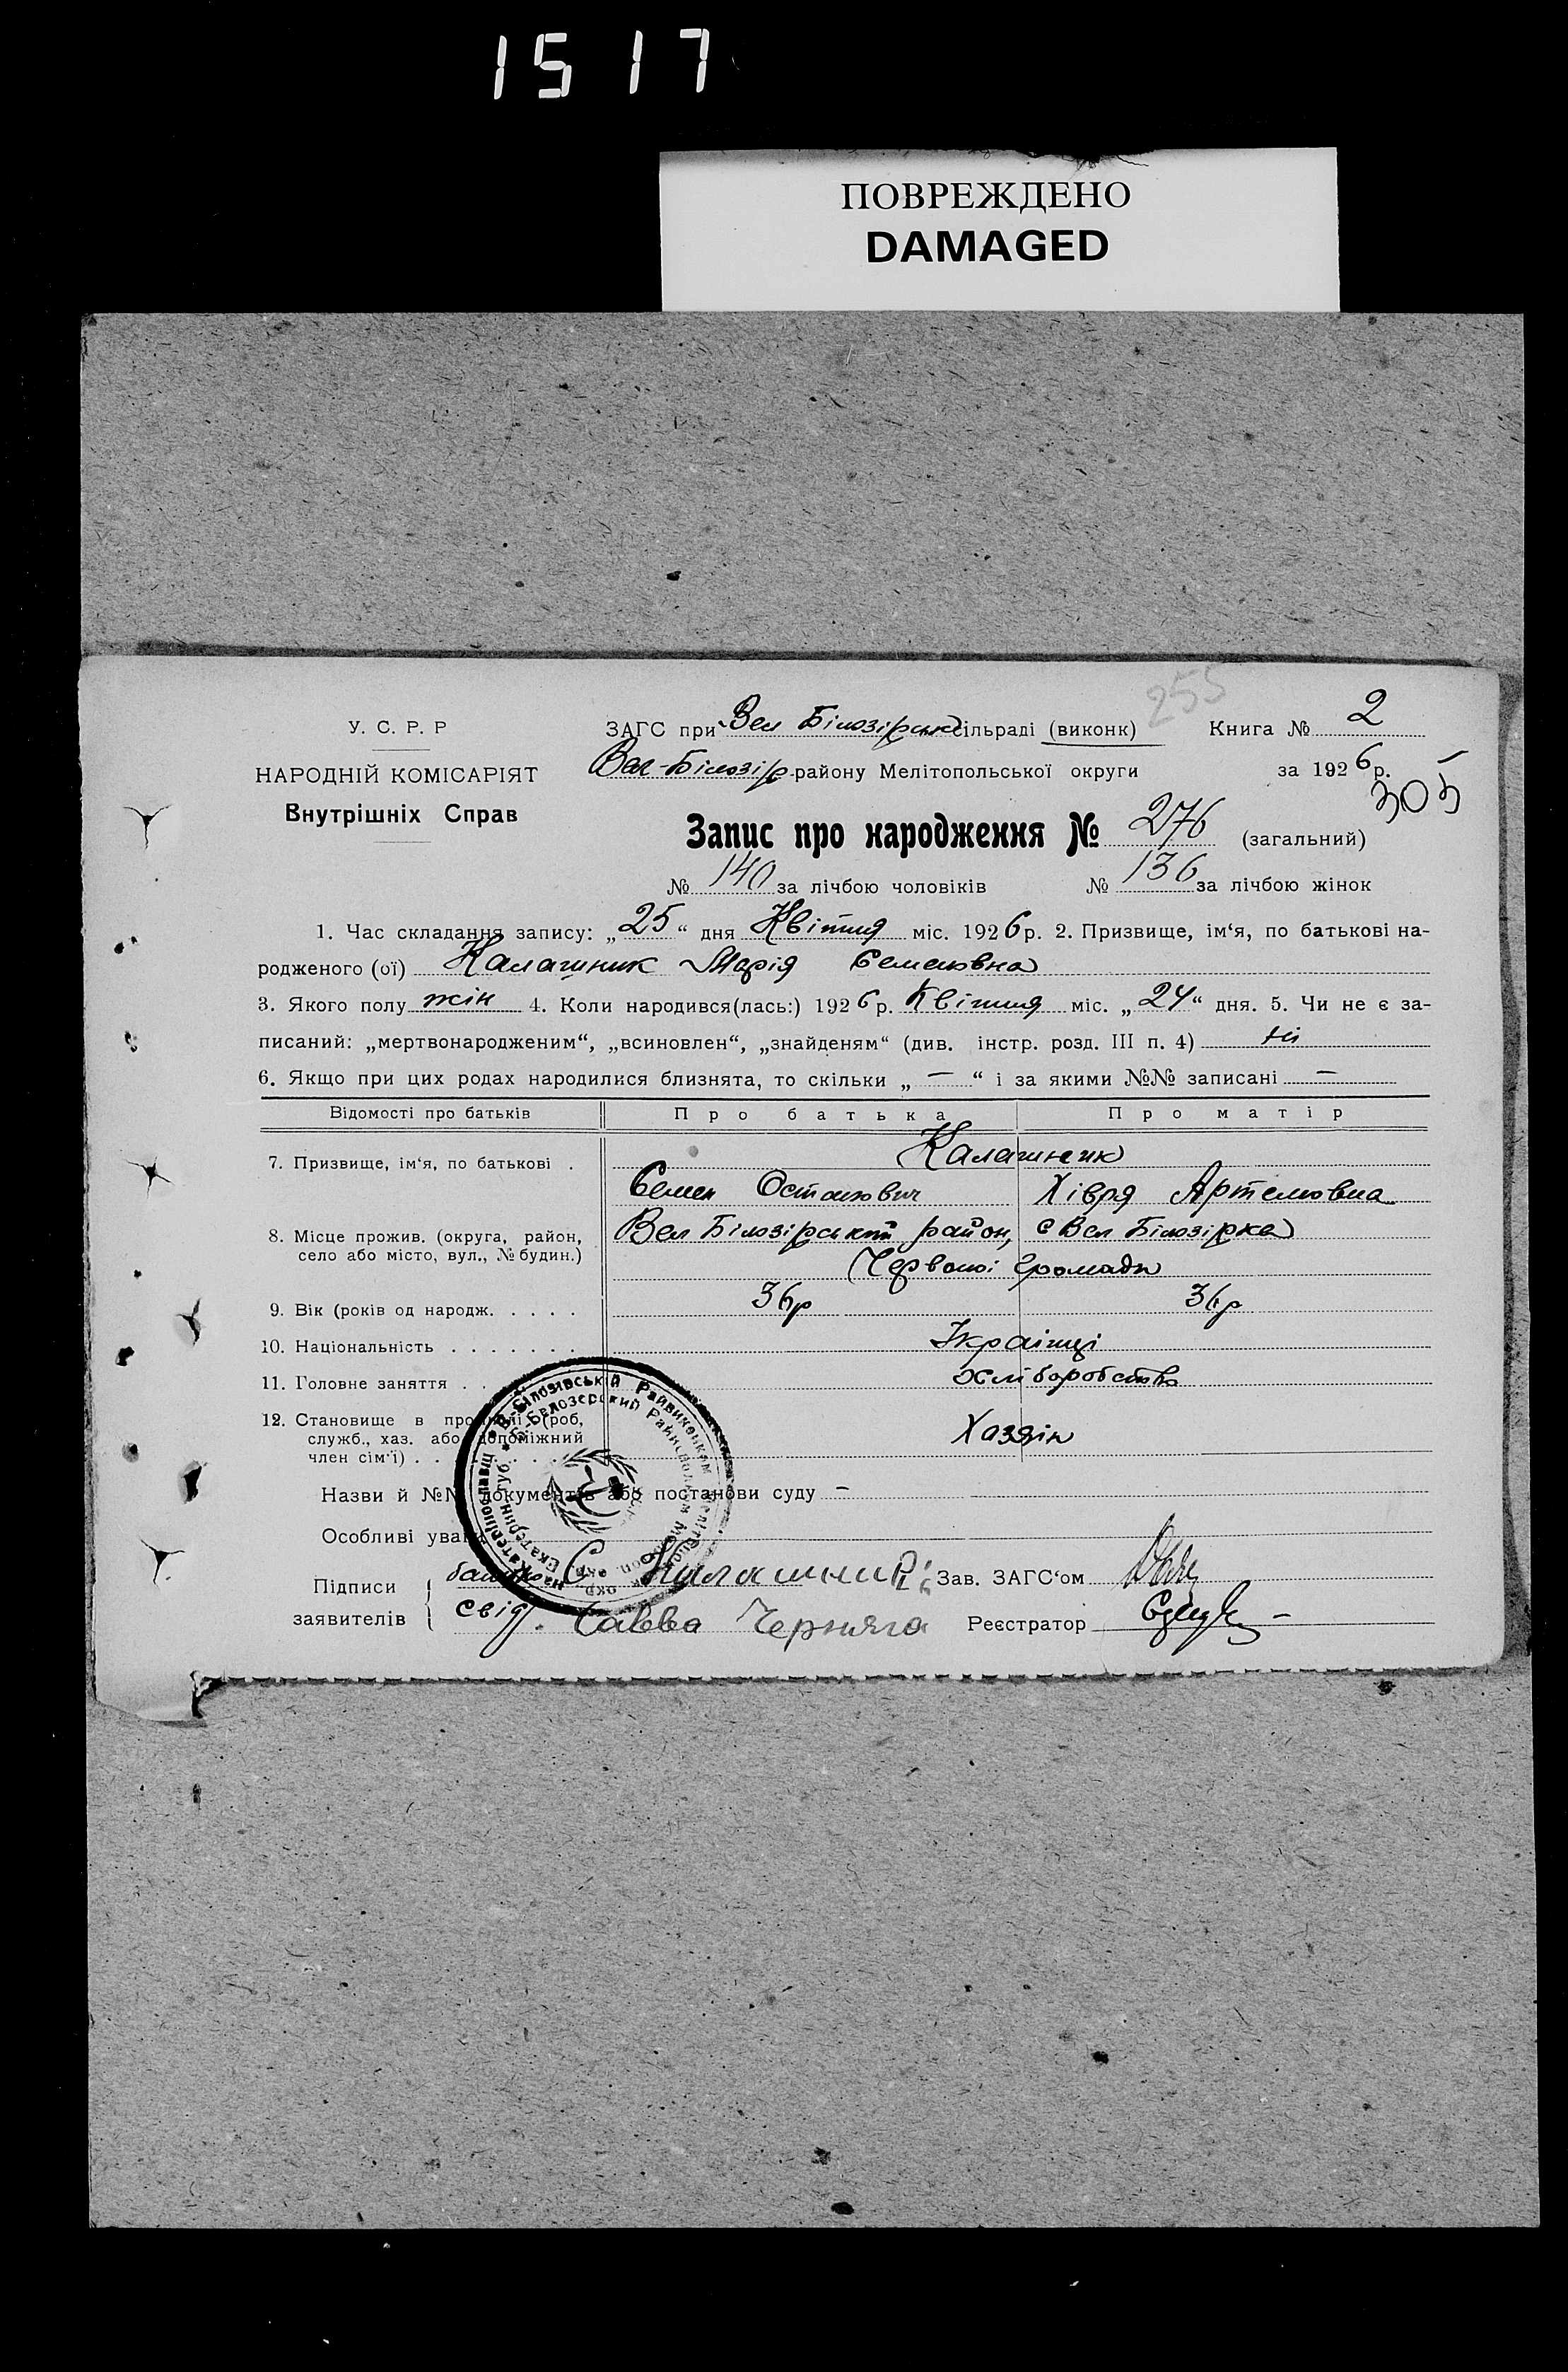 1517
ПОВРЕЖДЕНО
DAMAGED
255
У. С. Р. Р
НАРОДНІЙ КОМІСАРІЯТ
Внутрішніх Справ
ЗАГС при Вел Білозірські сільраді (виконк)
Книга № 2
Вел-Білозір району Мелітопольської округи
за 1926 р.
305
Запис про народження № 276 (загальний)
№ 140 за лічбою чоловіків № 136 за лічбою жінок
1. Час складання запису: „25“ дня Квітня міс. 1926 р. 2. Призвище, ім‘я, по батькові на-
родженого (ої) Калашник Марія Семеновна
3. Якого полу жін 4. Коли народився(лась:) 1926 р. Квітня міс. „24“ дня. 5. Чи не є за-
писаний: „мертвонародженим“, „всиновлен“, „знайденям“ (див. інстр. розд. III п. 4) ні
6. Якщо при цих родах народилися близнята, то скільки „ — “ і за якими №№ записані —
Відомості про батьків Про батька Про матір
7. Призвище, ім‘я, по батькові . Калашник
Семен Остапович Хівря Артемовна
8. Місце прожив. (округа, район,
село або місто, вул., № будин.)
Вел Білозірський район, с Вел Білозірка
Червоної Громади
9. Вік (років од народж. . . . . 36р 36р
10. Національність . . . . . . . Українці
11. Головне заняття . . хліборобство
12. Становище в про (роб,
служб., хаз. або допоміжний
член сім‘ї) . . . .
Хазяін
Назви й №№ документів або постанови суду —
Особливі уваги
Підписи
заявителів
батько С Калашник
свід. Савва Черняга
Зав. ЗАГС‘ом
Реєстратор